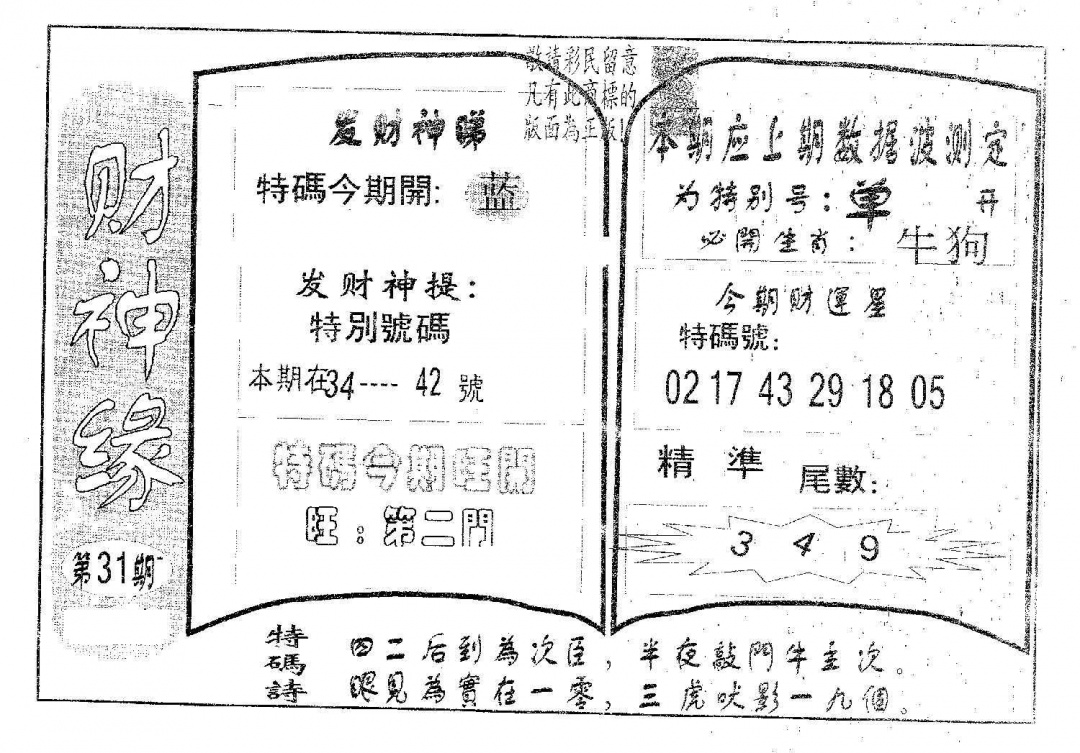 财神缘
第31期
敬請彩民留意
凡有此商標的
版面為正版!
发财神睇
特碼今期開: 蓝
发财神提:
特別號碼
本期在34----42號
特碼今期旺門
旺:第二門
本期应上期数据波测定
为特别号:单开
必開生肖: 牛狗
今期财運星
特碼號:
02 17 43 29 18 05
精準尾數:
3 4 9
特碼詩
四二后到為次臣,半夜敲門牛主次。
眼見為實在一零,三虎吠影一九個。